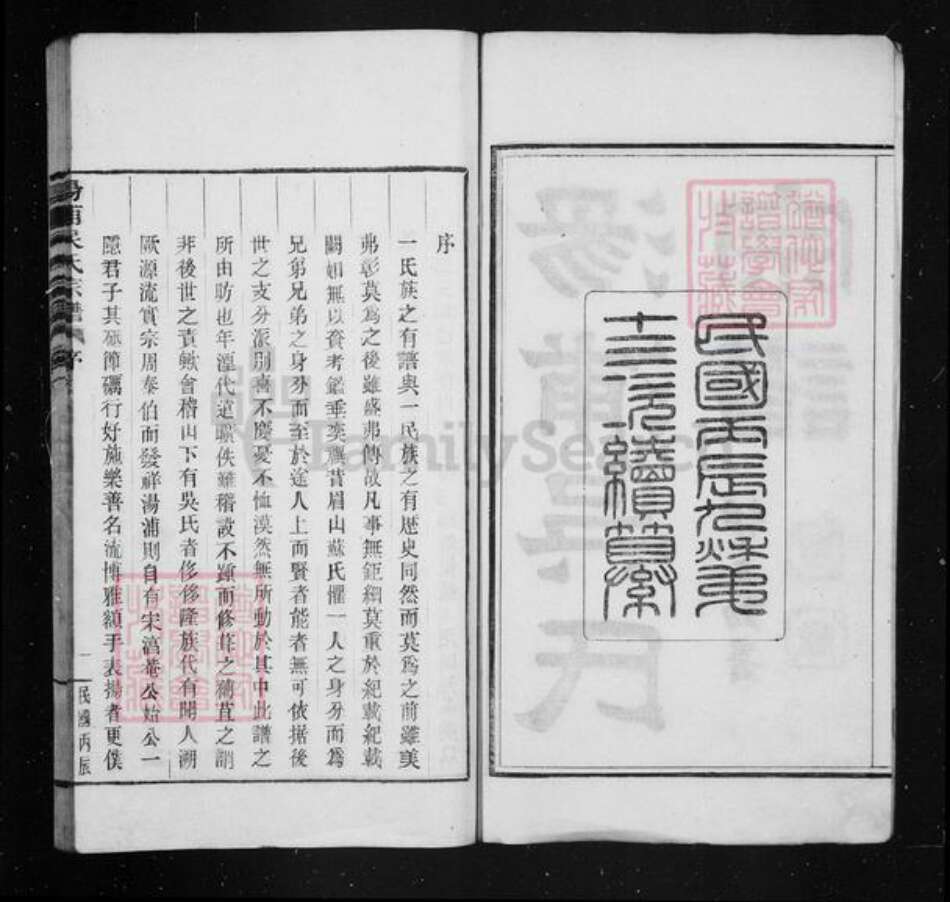 民國丙辰九秋第
十三次續纂
序
一氏族之有譜與一民族之有歷史同然而莫爲之前雖美
弗彰莫爲之後雖盛弗傳故凡事無鉅細莫重於紀載紀載
闕如無以資考鑑垂奕禩昔眉山蘇氏懼一人之身分而爲
兄弟兄弟之身分而至於途人上而賢者能者無可依據後
世之支分派別喜不慶憂不恤漠然無所動於其中此譜之
所由昉也年湮代遠散佚難稽設不踵而修葺之補苴之誚
非後世之責歟會稽山下有吳氏者侈侈隆族代有聞人溯
厥源流實宗周泰伯而發祥湯浦則自有宋 菴公始公一
隱君子其砥節礪行好施樂善名流博雅額手表揚者更僕
湯浦吳氏宗譜
序
一
民國丙辰
FamilySearch